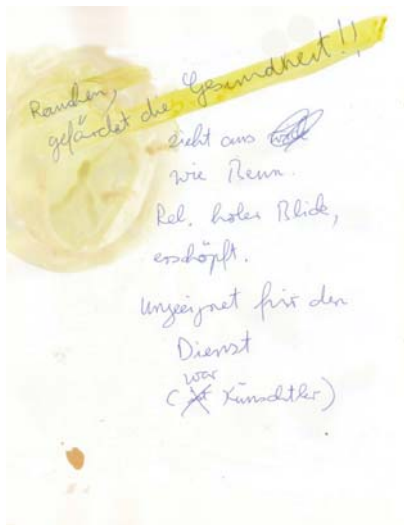 Rauchen,
gefärdet die Gesundheit!!
zieht aus
wie Benn.
Rel. holer Blick,
erschöpft.
Ungeeignet für den
Dienst
war
( Künschtler)